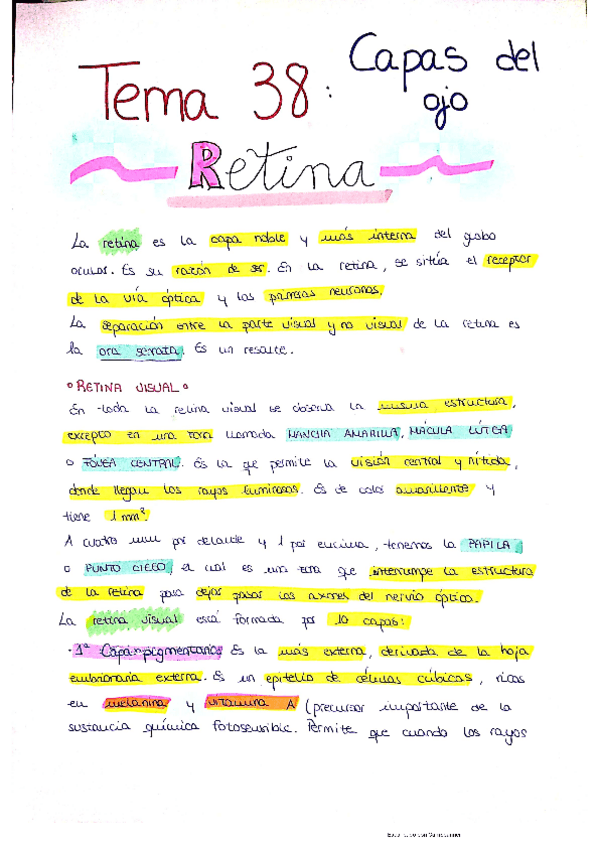 Tema 38: Capas del
ojo
Retina
La retina es la capa noble y más interna del globo
ocular. Es su razón de ser. En la retina, se sitúa el receptor
de la vía óptica y las primeras neuronas.
La separación entre la parte visual y no visual de la retina es
la ora serrata. Es un resalte.
º RETINA VISUAL º
En toda la retina visual se observa la misma estructura,
excepto en una zona llamada MANCHA AMARILLA, MÁCULA LÚTEA
o FÓVEA CENTRAL. Es la que permite la visión central y nítida,
donde llegan los rayos luminosos. Es de color amarillento y
tiene 1 mm².
A cuatro mm por delante y 1 por encima, tenemos la PAPILA
o PUNTO CIEGO, el cual es una zona que interrumpe la estructura
de la retina para dejar pasar los axones del nervio óptico.
La retina visual está formada por 10 capas:
· 1ª Capa pigmentaria: Es la más externa, derivada de la hoja
embrionaria externa. Es un epitelio de células cúbicas, ricas
en melanina y vitamina A (precursor importante de la
sustancia química fotosensible. Permite que cuando los rayos
Escaneado con CamScanner